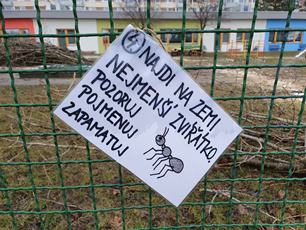 4 NAJDI NA ZEMI
NEJMENŠÍ ZVÍŘÁTKO
POZORUJ
POJMENUJ
ZAPAMATUJ